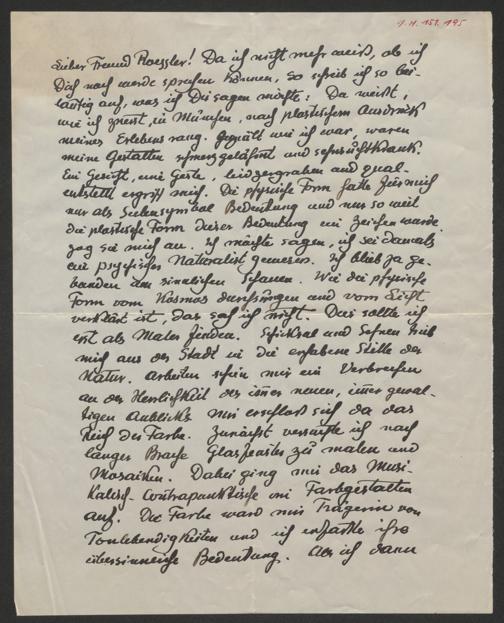 I.N. 151.195
Lieber Freund Roessler! Da ich nicht mehr weiß, ob ich
Dich noch werde sprechen können, so schreib ich so bei-
läufig auf, was ich Dir sagen möchte: Du weißt,
wie ich zuerst, in München, nach plastischem Ausdruck
meines Erlebens rang. Gequält wie ich war, waren
meine Gestalten schmerzgelähmt und sehnsuchtkrank.
Ein Gesicht, eine Geste, leidzergraben und qual-
entstellt ergriff mich. Die physische Form hatte für mich
nur als Seelensymbol Bedeutung und nur so weil
die plastische Form dieser Bedeutung ein Zeichen wurde,
zog sie mich an. Ich möchte sagen, ich sei damals
ein psychischer Naturalist gewesen. Ich blieb ja ge-
bunden am sinnlichen Schauen. Wie die physische
Form vom Kosmos durchsungen und vom Licht
verklärt ist, das sah ich nicht. Dies sollte ich
erst als Maler finden. Schicksal und Sehnen trieb
mich aus der Stadt in die erhabene Stille der
Natur. Arbeiten schien mir ein Verbrechen
an der Herrlichkeit des immer neuen, immer gewal-
tigen Anblicks. Mir erschloß sich da das
Reich der Farbe. Zunächst versuchte ich nach
langer Brache Glasfenster zu malen und
Mosaiken. Dabei ging mir das Musi-
kalisch-Contrapunktische im Farbgestalten
auf. Die Farbe ward mir Trägerin von
Tonlebendigkeiten und ich erfaßte ihre
übersinnliche Bedeutung. Als ich dann